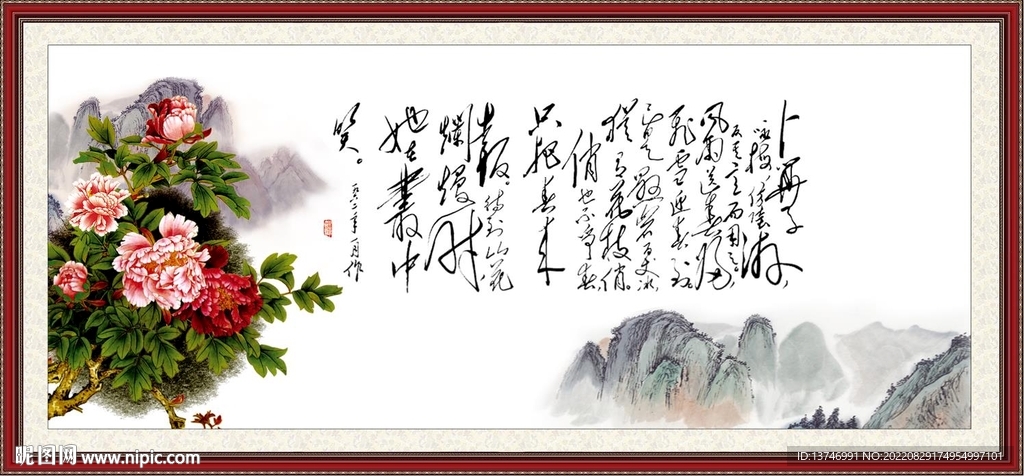 卜算子
咏梅 依陆游,
反其意而用之。
风雨送春归,
飞雪迎春到。
已是悬崖百丈冰,
犹有花枝俏。
俏也不争春
只把春来
报。待到山花
烂熳时
她在丛中
笑。
昵图网 www.nipic.com
ID:13746991 NO:20220829174954997101